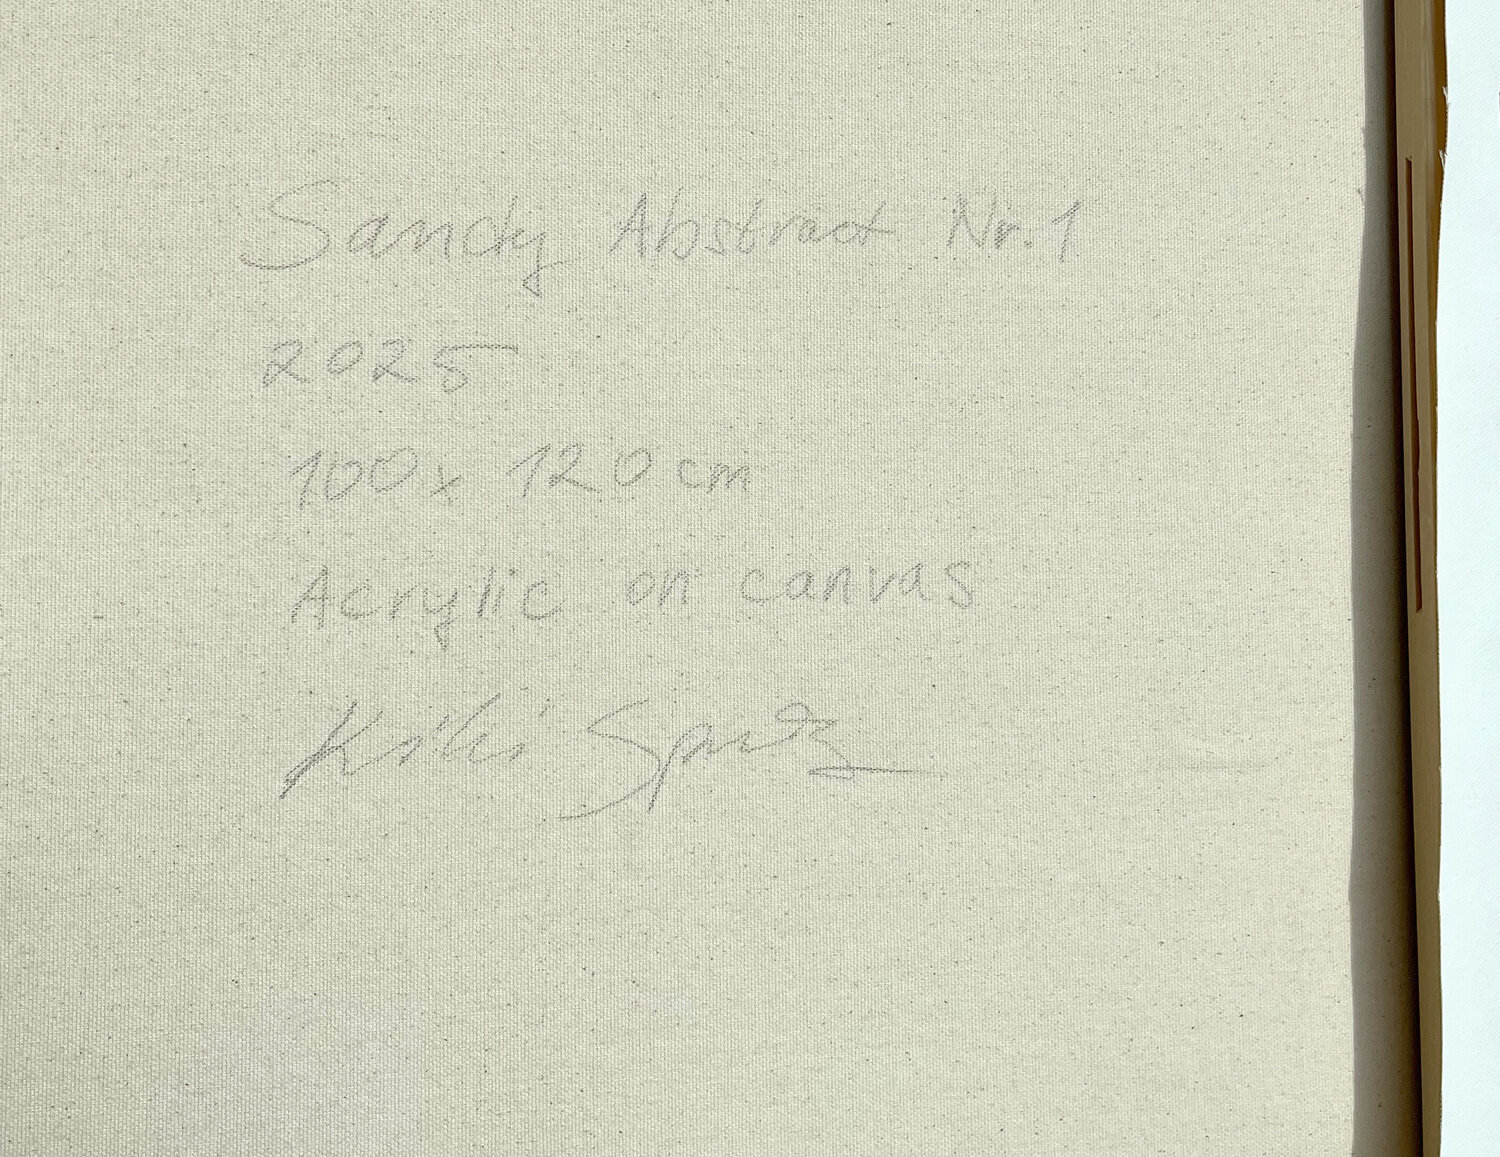 Sandy Abstract Nr. 1
2025
100 x 120 cm
Acrylic on canvas
Kiki